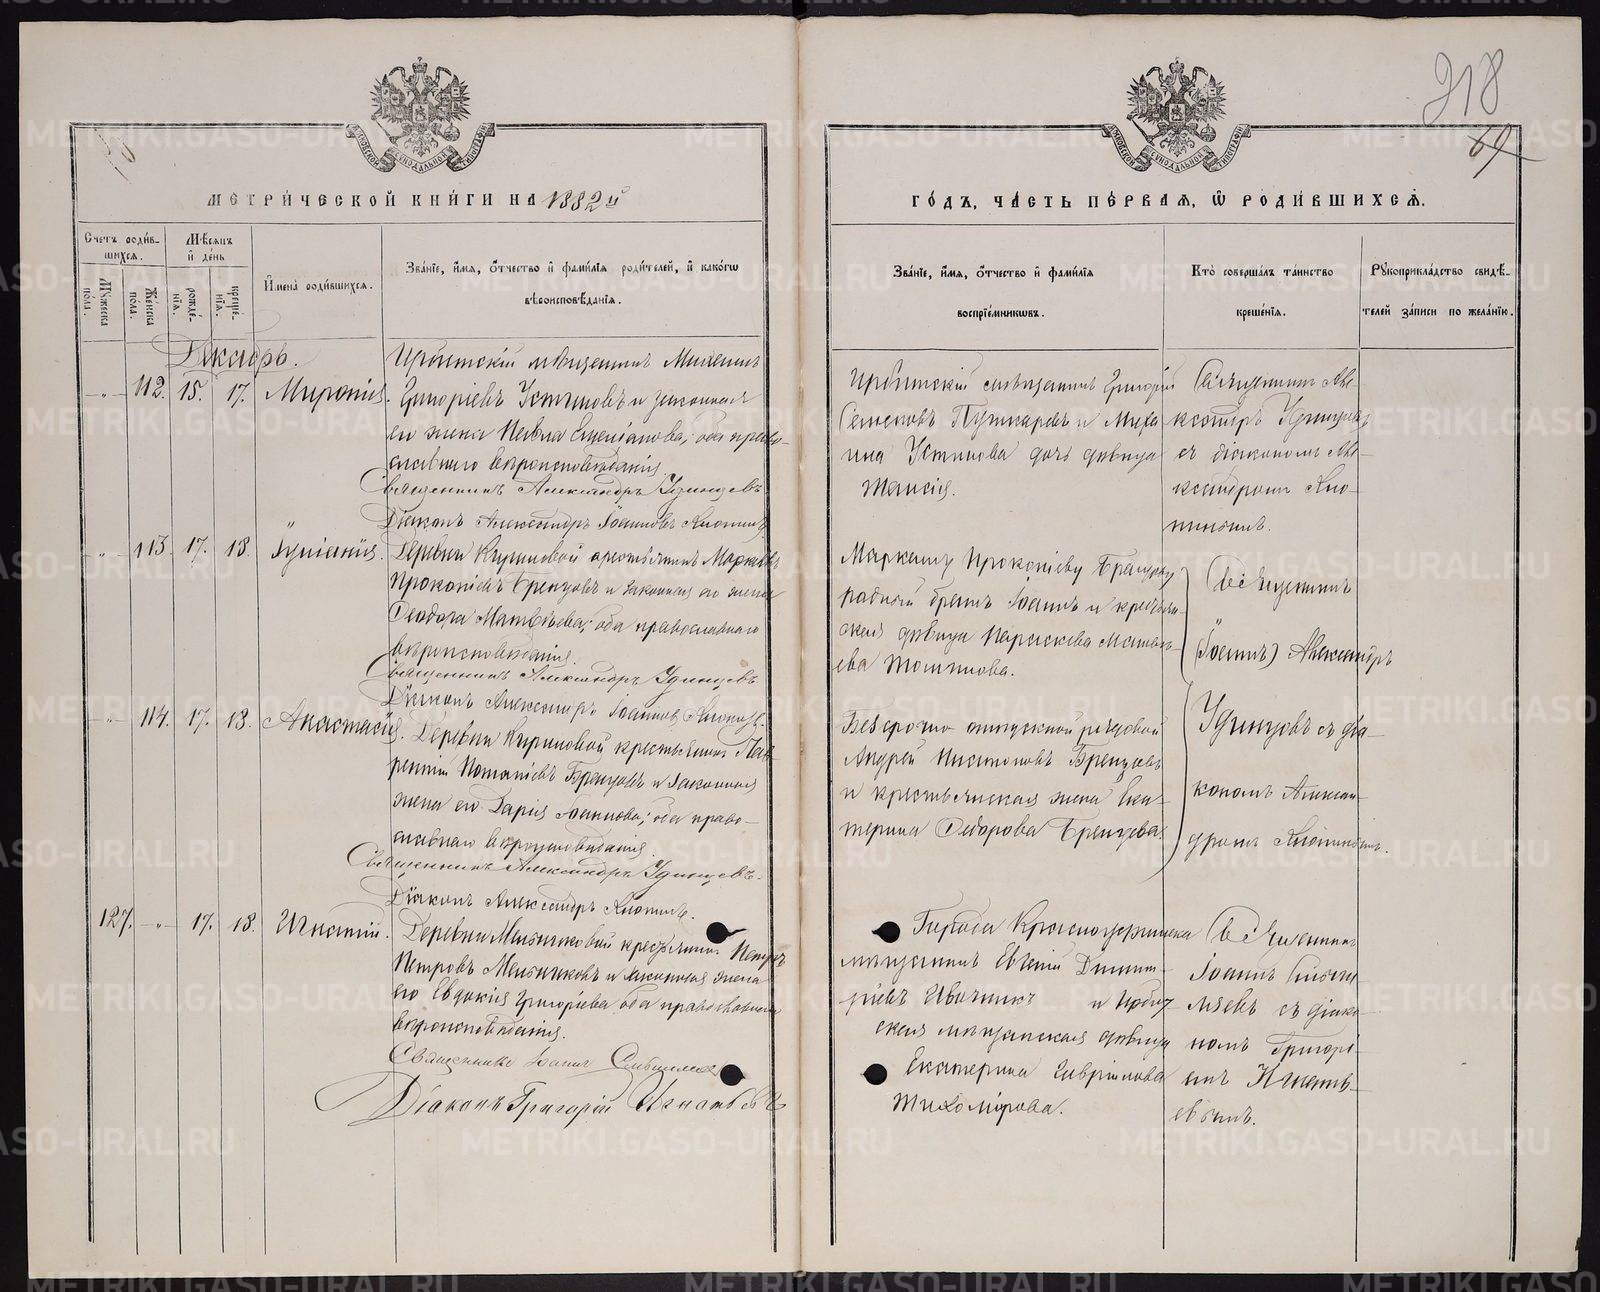 218
69
МЕТРИ́ЧЕСКОЙ КНИ́ГИ НА 1882й
ГО́ДЪ, ЧА́СТЬ ПЕ́РВАЯ, Ѡ РОДИ́ВШИХСЯ.
Счетъ роди́вшихся.
Му́жеска по́ла.
Же́нска по́ла.
Мѣ́сяцъ и де́нь
рожде́нїя.
креще́нїя.
Имена̀ роди́вшихся.
Зва́нїе, и́мя, о́тчество и фами́лїя роди́телей, и како́гѡ
вѣроисповѣ́данїя.
Зва́нїе, и́мя, о́тчество и фами́лїя
воспрїе́мникѡвъ.
Кто̀ соверша́лъ та́инство
креще́нїя.
Рꙋкоприкла́дство свидѣ́-
телей за́писи по жела́нїю.
Декабрь.
112. 15. 17. Миропія.
Ирбитскій мѣщанинъ Михаилъ
Григоріевъ Устиновъ и законная
его жена Павла; оба право-
славнаго вѣроисповѣданія.
Священникъ Александръ Удинцевъ
Діаконъ Александръ Іоанновъ
Ирбитскій мѣщанинъ Григорій
Семеновъ Пушкаревъ и Миха
ила Устинова дочь дѣвица
Таисія.
Священникъ Але-
ксандръ Удинцевъ
съ діакономъ Але-
ксандромъ
113. 17. 18. Іуліанія.
Деревни Кириловой крестьянинъ
Прокопіевъ Бренцовъ и законная его жена
Ѳеодора Матвѣева; оба православнаго
вѣроисповѣданія.
Священникъ Александръ Удинцевъ
Діаконъ Александръ Іоанновъ
Прокопіеву Бренцову
родной братъ Іоаннъ и крестьян-
ская дѣвица Параскева
Священникъ
(Іоаннъ) Александръ
Удинцовъ съ діа-
кономъ Алексан-
дромъ
114. 17. 18. Анастасія.
Деревни Кириловой крестьянинъ Лав-
рентій Потапіевъ Бренцовъ и законная
жена его Дарія Іоаннова; оба право-
славнаго вѣроисповѣданія.
Священникъ Александръ Удинцевъ.
Діаконъ Александръ
Безсрочно отпускной рядовой
Андрей Бренцовъ
и крестьянская жена Ека-
терина Ѳедорова Бренцева.
127. 17. 18. Игнатій.
Деревни Мельниковой крестьянинъ Петръ
Петровъ Мельниковъ и законная жена
его Евдокія Григоріева оба православнаго
вѣроисповѣданія.
Священникъ Іоаннъ
Діаконъ Григорій Игнатьевъ
Города Красноуфимска
мѣщанинъ Евгеній Димит-
ріевъ и Ирбит
ская мѣщанская дѣвица
Екатерина Гавріилова
Тихомірова.
Священникъ
Іоаннъ
съ діако
номъ Григорі-
емъ Игнать-
евымъ.
METRIKI.GASO-URAL.RU